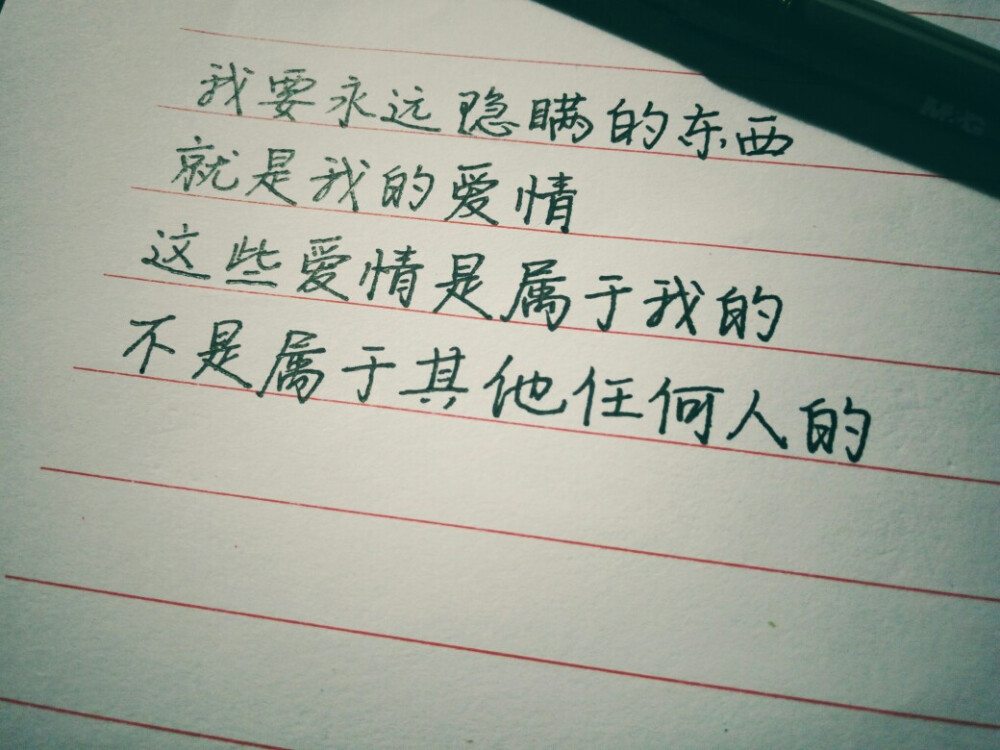 我要永远隐瞒的东西
就是我的爱情
这些爱情是属于我的
不是属于其他任何人的
M&G